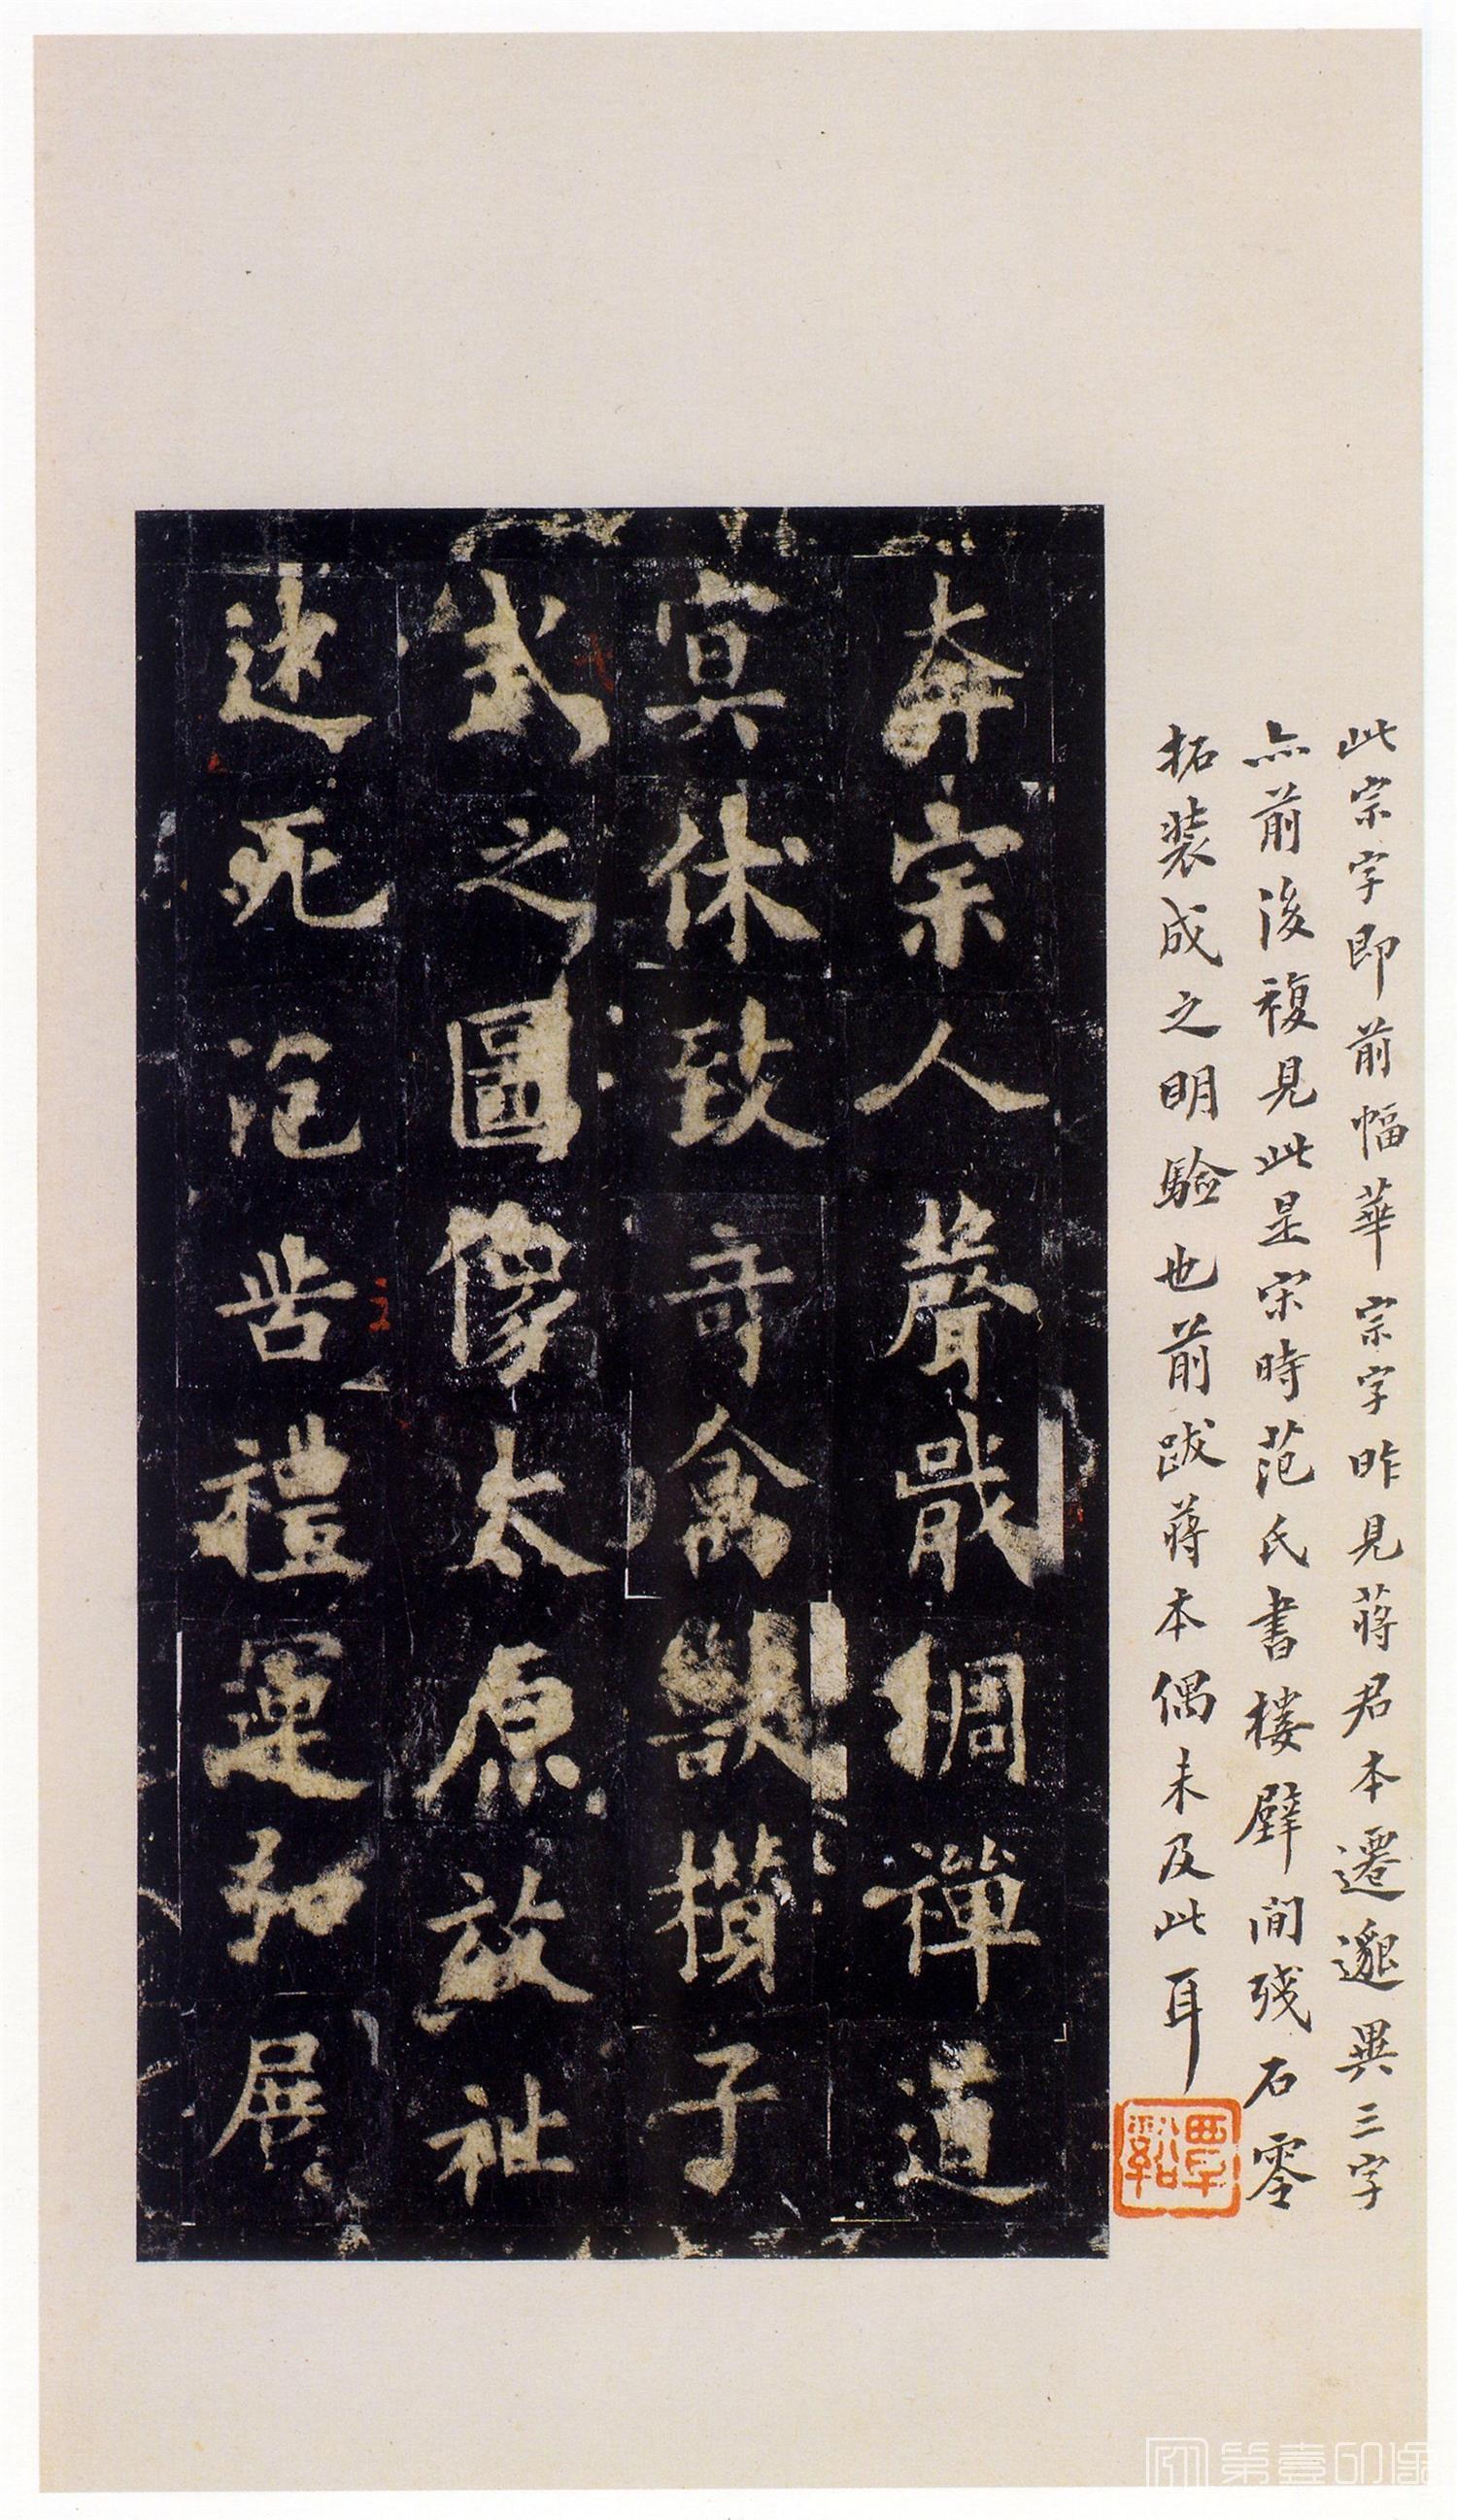 此宗字即前幅華宗字昨見蔣君本遷邈異三字
亦前後複見此是宋時范氏書樓壁間殘石零
拓裝成之明驗也前跋蔣本偶未及此耳
覃谿
奔宗人聲戢綢禪道
冥休致奇禽獸攢子
式之圖像太原放祉
述死皆禮運弘展
第壹印像